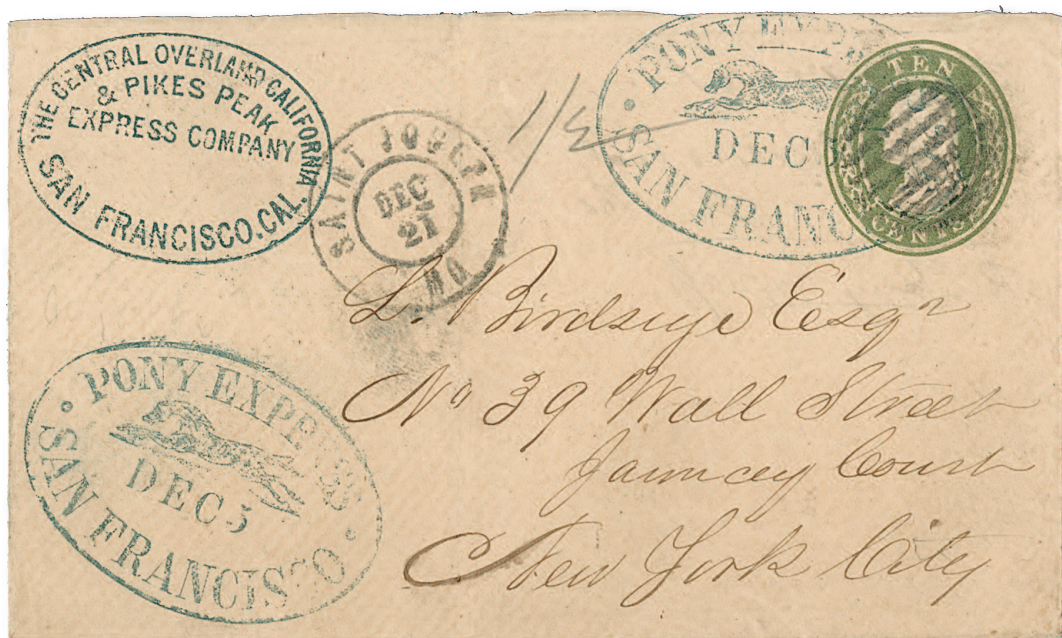 THE CENTRAL OVERLAND CALIFORNIA
& PIKES PEAK
EXPRESS COMPANY
SAN FRANCISCO. CAL.
SAINT JOSEPH
DEC
21
MO
1/2
PONY EXPRE
DEC
SAN FRANC
TEN
CENTS
L. Birdseye Esqr
No 39 Wall Street
Jauncey Court
New York City
PONY EXPRESS
DEC 5
SAN FRANCISCO